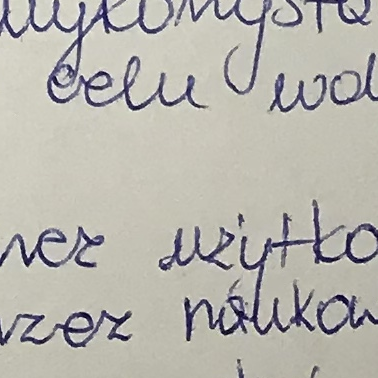 wykorzysta
celu wod
rzez użytko
rzez naukow